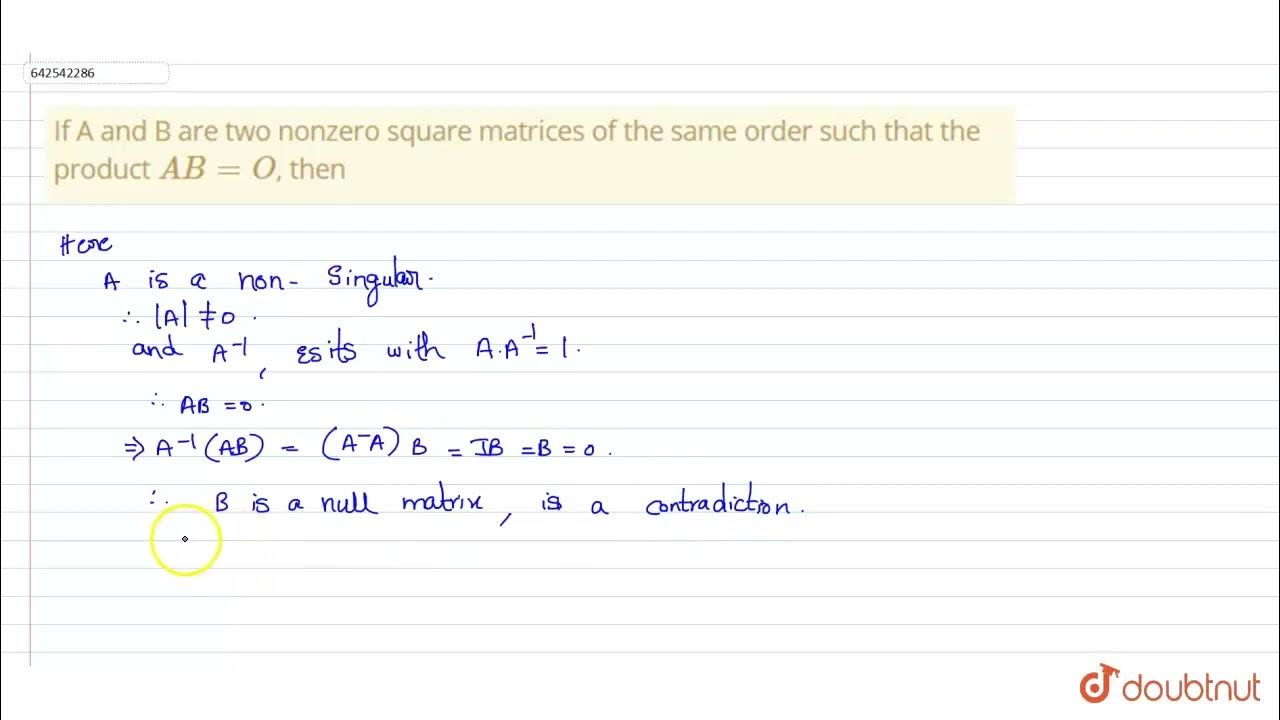 642542286
If A and B are two nonzero square matrices of the same order such that the
product AB = O, then
Here
A is a non- Singular.
∴ |A| ≠ 0.
and A⁻¹, esits with A.A⁻¹ = 1.
∴ AB = 0.
⇒ A⁻¹(AB) = (A⁻A) B = IB = B = 0.
∴ B is a null matrix, is a contradiction.
doubtnut